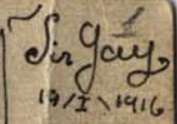 Sir Gay,
19/I\1916